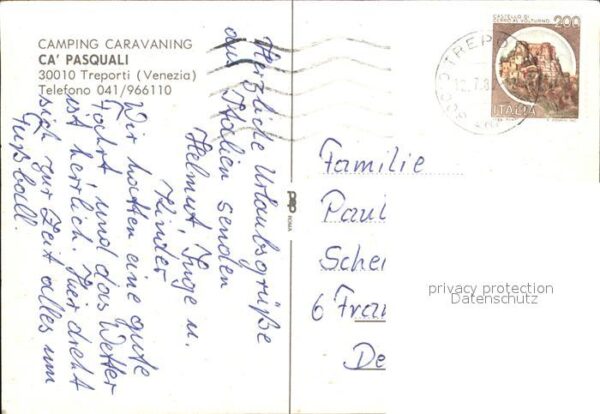 CAMPING CARAVANING
CA' PASQUALI
30010 Treporti (Venezia)
Telefono 041/966110
Herzliche Urlaubsgrüße
aus Italien senden
Helmut, Inge u.
Kinder
Wir hatten eine gute
Fahrt und das Wetter
ist herrlich. Hier dreht
sich zur Zeit alles um
Fußball.
ROMA
CASTELLO DI
CERRO AL VOLTURNO
200
ITALIA
TREPO
Familie
Paul
Scher
6 Fran
De
privacy protection
Datenschutz